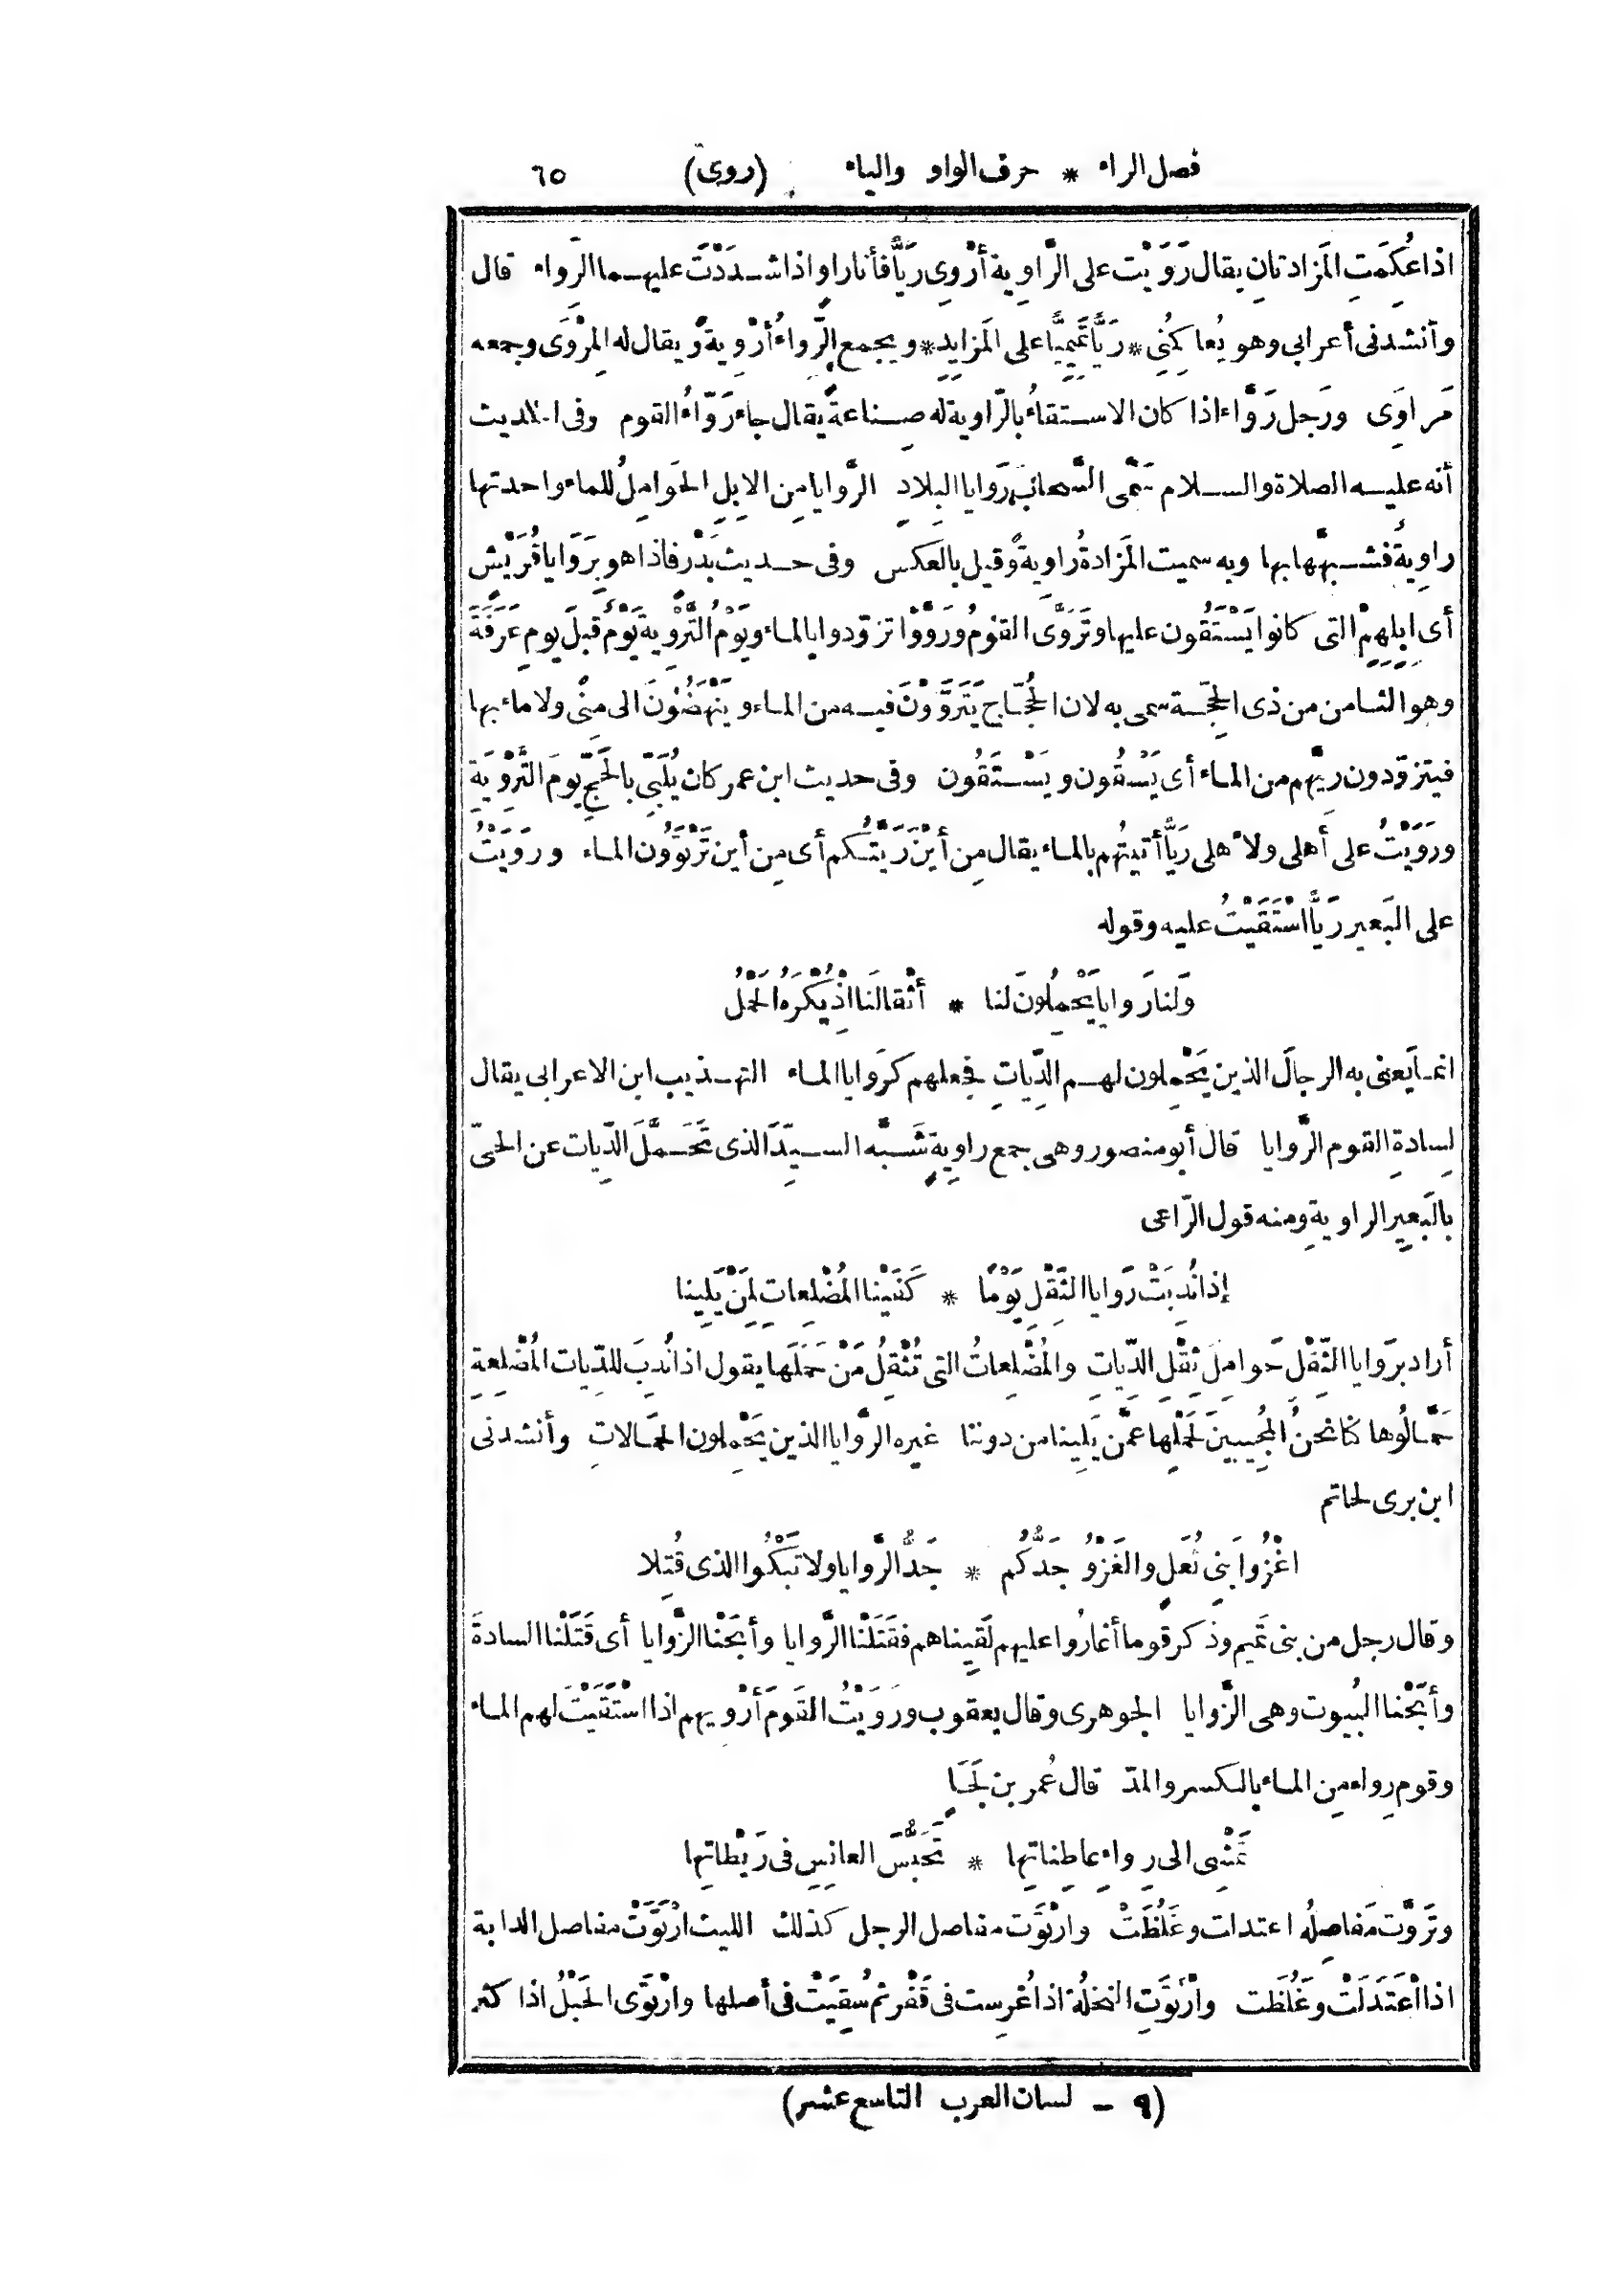 فصل الراء * حرف الواو والياء (روى) ٦٥
اذا عُكِمَتِ المَزادتانِ يقال رَوَيْت على الرَّاوِية أَرْوِى رَيًّا فأنا راوٍ اذا شدَدْتَ عليهما الرِّواء قال
وأنشدنى أعرابى وهو يُعاكِمُنِى * رَيًّا تَمِيمِيًّا على المَزايِدِ * ويجمع الرِّواءُ أَرْوِيةً ويقال له المِرْوَى وجمعه
مَراوِى ورَجل رَوَّاء اذا كان الاستقاءُ بالرّاوية له صِناعةً يقال جاء رَوّاءُ القوم وفى الحديث
أنه عليه الصلاة والسلام سَمَّى السَّحابَ رَوايا البِلادِ الرَّوايا مِن الابِلِ الحَوامِلُ للماء واحدتها
راوِيةٌ فشبهَّها بها وبه سميت المَزادةُ راوِيةً وقيل بالعكس وفى حديث بَدْر فاذا هو بِرَوَايا قُرَيْشٍ
أى ابِلِهِمْ التى كانوا يَسْتَقُون عليها وتَرَوَّى القوْمُ ورَوَّوْا تزوّدوا بالماء ويَوْمُ التَّرْوِيةِ يَوْمٌ قبلَ يومِ عَرَفَةَ
وهو الثامن من ذى الحِجّة سمى به لان الحُجّاج يَتَرَوَّوْنَ فيه من الماء ويَنْهَضُونَ الى مِنًى ولا ماء بها
فيتزوّدون رِيَّهم من الماء أى يَسْقُون ويَسْتَقُون وفى حديث ابن عمر كان يُلَبِّى بالحَجِّ يومَ التَّرْوِيَةِ
ورَوَيْتُ على أَهلى ولأَهلى رَيًّا أتيتُهم بالماء يقال مِن أَيْنَ رَيَّتُكم أى مِن أين تَرْتَوُون الماء ورَوَيْتُ
على البَعير رَيًّا اسْتَقَيْتُ عليه وقوله
ولَنا رَوايا يَحْمِلُون لَنا * أَثْقالَنا اذْ يُكْرَهُ الحَمْلُ
انما يَعنى به الرجالَ الذين يَحْمِلون لهم الدِّياتِ فجعلهم كرَوايا الماء التهذيب ابن الاعرابى يقال
لِسادةِ القوم الرَّوايا قال أبو منصور وهى جمع راوِيةٍ شَبَّه السيِّدَ الذى تَحَمَّلَ الدِّيات عن الحىّ
بالبَعيرِ الراويةِ ومنه قول الرّاعى
إذا نُدِبَتْ رَوايا الثِّقْلِ يَوْمًا * كَفَيْنا المُضْلِعاتِ لِمَنْ يَلِينا
أراد بروايا الثِّقْل حَوامِلَ ثِقْلِ الدِّياتِ والمُضْلِعاتُ التى تُثْقِلُ مَنْ حَمَلَها يقول اذا نُدِبَ للدِّيات المُضْلِعةِ
حَمَّالُوها كنا نحنُ المُجِيبينَ لحَمْلِها عَمَّن يَلِينا من دوننا غيره الرَّوايا الذين يَحْمِلون الحَمالاتِ وأنشدنى
ابن برى لحاتم
اغْزُوا بَنِى ثُعَل والغَزْوُ جَدُّكُم * جَدُّ الرَّوايا ولا تَبْكُوا الذى قُتِلا
وقال رجل من بنى تَميم وذكر قومًا أغارُوا عليهم لَقِيناهم فقَتَلْنا الرَّوايا وأبَحْنا الزَّوايا أى قَتَلْنا السادةَ
وأبَحْنا البُيوت وهى الزَّوايا الجوهرى وقال يعقوب ورَوَيْتُ القَومَ أَرْوِيهم اذا اسْتَقَيْتَ لهم الماء
وقوم رِواء مِن الماء بالكسر والمدّ قال عُمر بن لَجَإٍ
تَمْشِى الى رِواءِ عاطِناتِها * تَحَبُّسَ العانِسِ فى رَيْطاتِها
وتَرَوَّت مَفاصِلُه اعتدلت وغَلُظَتْ وارْتَوَت مفاصل الرجل كذلك الليث ارْتَوَتْ مفاصل الدابة
اذا اعْتَدَلَتْ وغَلُظَت وارْتَوَتِ النخلة اذا غُرِست فى قَفْر ثم سُقِيَتْ فى أصلها وارْتَوَى الحَبْلُ اذا كثر
(٩ – لسان العرب التاسع عشر)